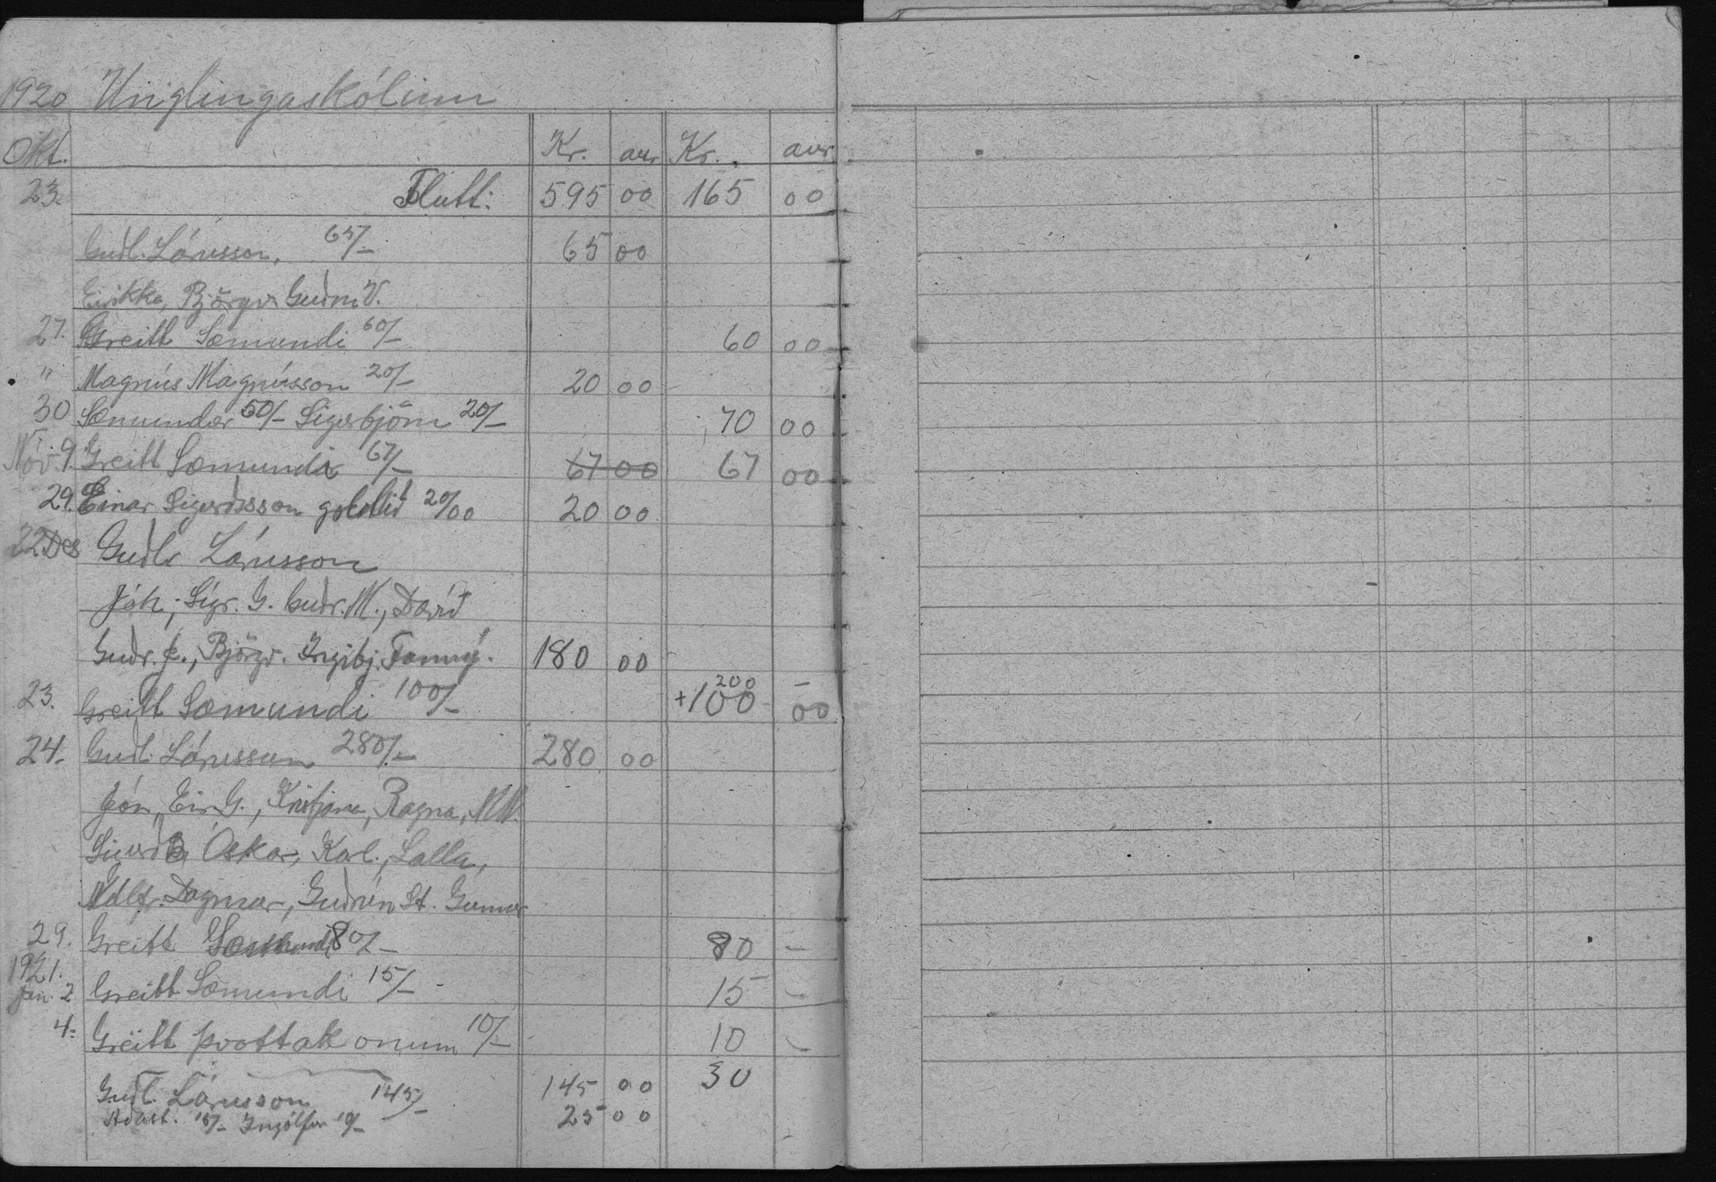 1920 Unglingaskólinn
Okt. Kr. aur Kr. aur
23. Flutt: 595 00 165 00
Guðl. Lárusson, 65/- 65 00
Eirikka, Björgv. Guðni V.
27. Greitt Sæmundi 60/- 60 00
" Magnús Magnússon 20/- 20 00
30 Sæmundur 50/- Sigurbjörn 20/- 70 00
Nóv. 9. Greitt Sæmundi 67/- 67 00 67 00
29. Einar Sigurðsson 20/00 20 00
22 Des Guðl. Lárusson
Jóh; Sigr. G. Guðr. M., Davíð
Guðr. J., Björgv. Ingibj. Fanný. 180 00
23. Greitt Sæmundi 100/- +100 200 - 00
24. Guðl. Lárusson 280/- 280 00
Jón, Eir. G., Kristjana, Ragna, M.M.
Sigurð B, Óskar, Karl, Lalla,
Dagmar, Guðrún St. Gunnar
29. Greitt Sæmundi 80/- 80 -
1921.
Jan. 2 Greitt Sæmundi 15/- 15 -
4. Greitt þvottakonum 10/- 10 -
30
Guðl. Lárusson 145/- 145 00
Aðalst. 15/- Ingólfur 10/- 25 00